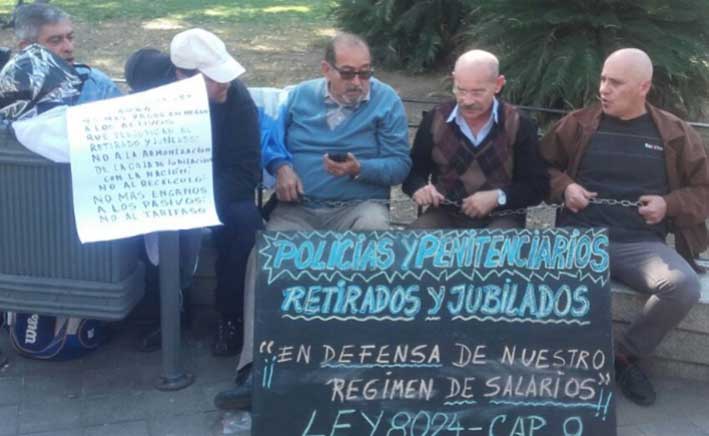 LEY
A LOS ACTIVOS
QUE PERJUDICAN AL
RETIRADO Y
NO A LA ARMONIZACION
DE LA CAJA DE JUBILACION
CON LA NACION!
NO AL RECALCULO!
NO MAS ENGAÑOS
A LOS PASIVOS!
NO AL TARIFASO
POLICIAS Y PENITENCIARIOS
RETIRADOS Y JUBILADOS
"EN DEFENSA DE NUESTRO
¡¡ REGIMEN DE SALARIOS" !!
LEY 8024-CAP. 9
Wilson